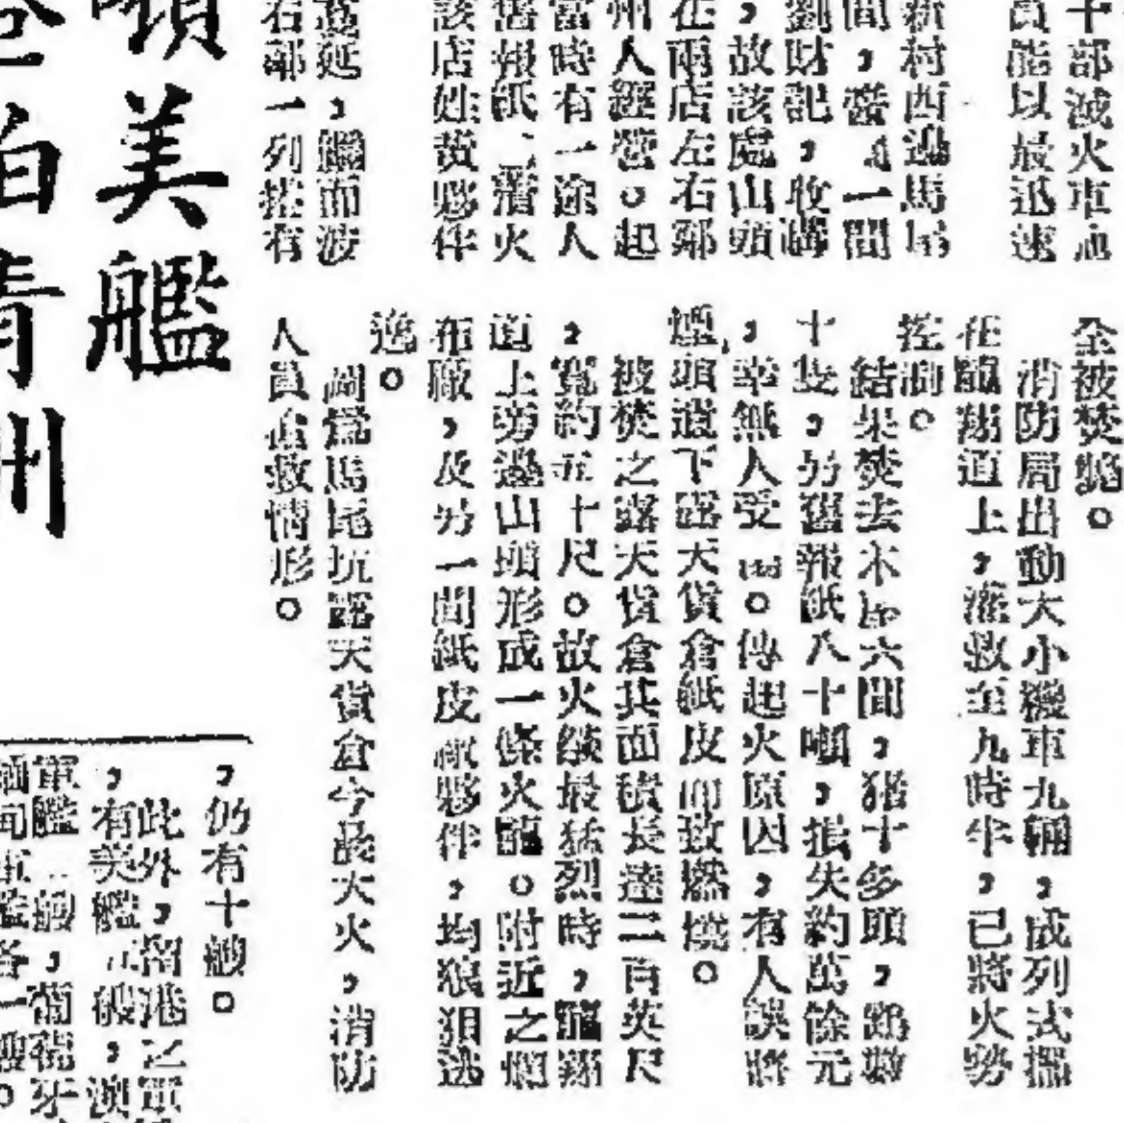 十部滅火車
員能以最迅速
新村西邊馬尾
間,一間
劉財記,收購
,故該處山頭
在兩店左右鄰
州人經營。起
當時有一途人
舊報紙、火
該店姓黃夥伴
蔓延,繼而波
右鄰一列搭有
全被焚燬。
消防局出動大小機車九輛,成列式擺
在龍翔道上,灌救至九時半,已將火勢
控制。
結果焚去木屋六間,猪十多頭,鷄數
十隻,另舊報紙八十噸,損失約萬餘元
,幸無人受。傳起火原因,有人誤將
煙頭遺下露天貨倉紙皮而致燃燒。
被焚之露天貨倉其面積長達二百英尺
,寬約五十尺。故火燄最猛烈時,龍翔
道上旁邊山頭形成一條火龍。附近之爛
布廠,及另一間紙皮廠夥伴,均狼狽逃
逸。
圖為馬尾坑露天貨倉今晨大火,消防
人員救情形。
美艦
泊青州
,仍有十艘。
此外,留港之軍
,有美艦艘,澳
軍艦艘,葡萄牙
緬甸軍艦各一艘。